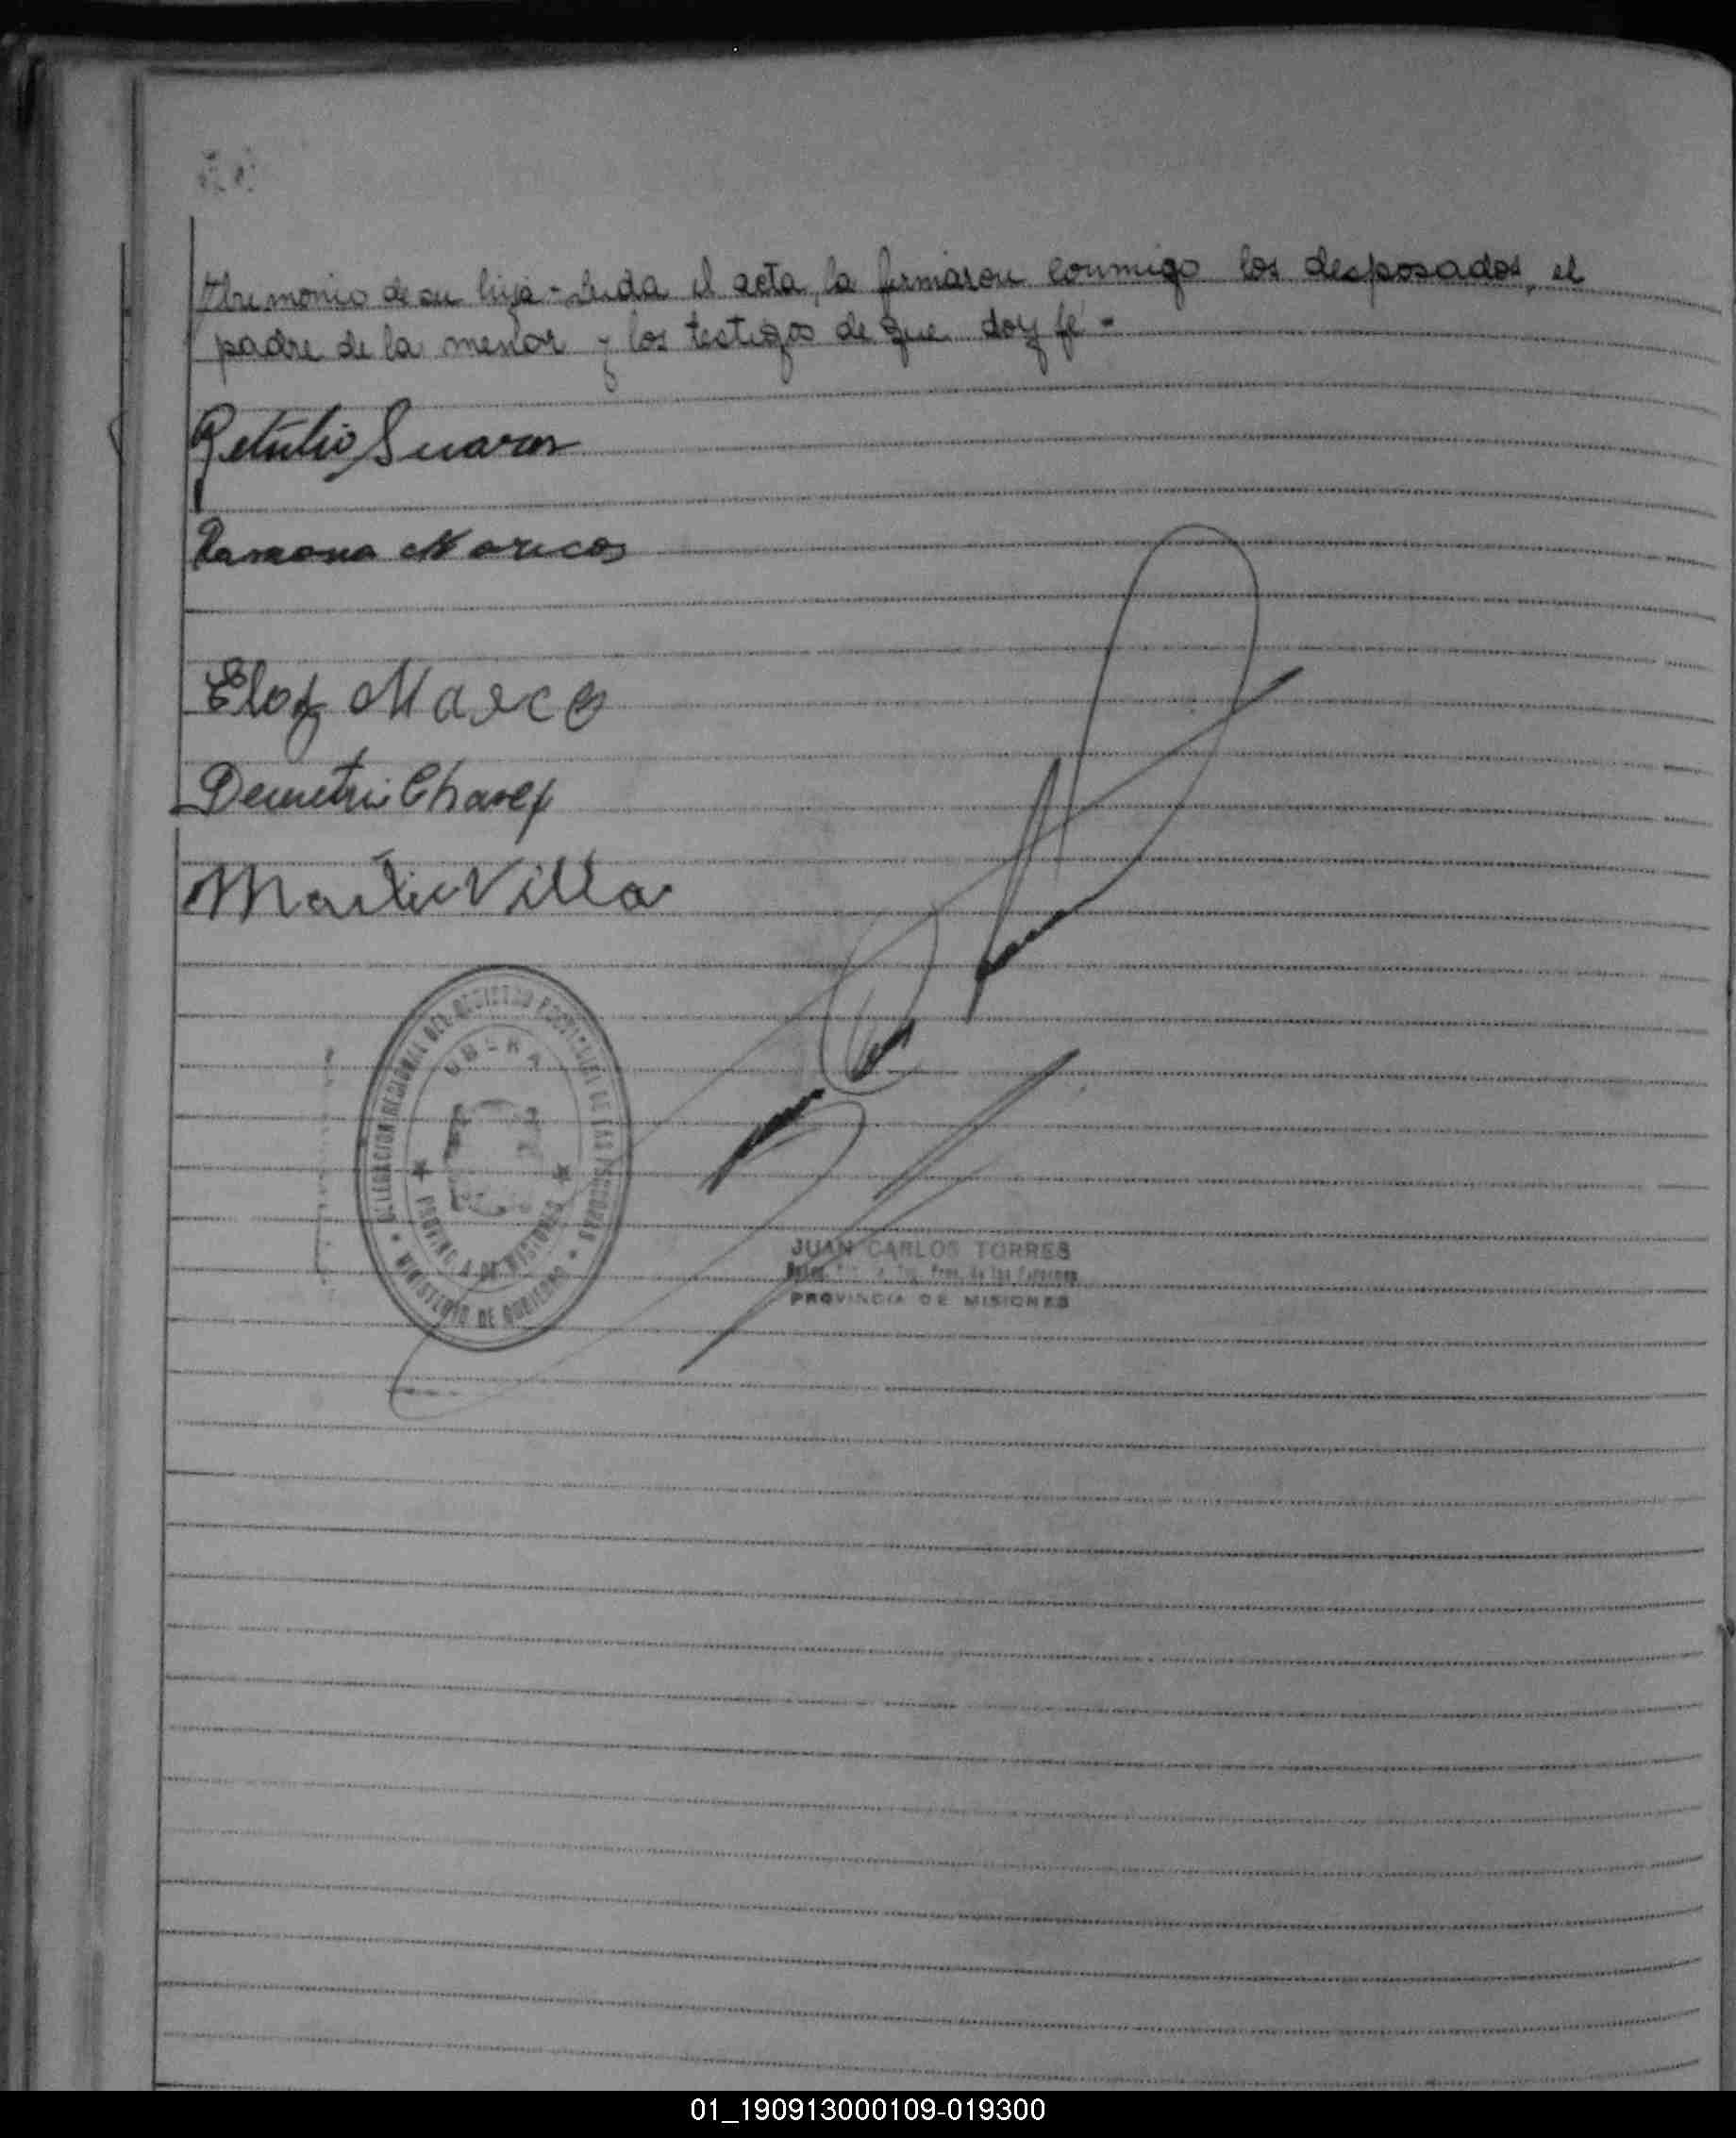 trimonio de su hija - Leida el acta, la firmaron conmigo los desposados, el
padre de la menor y los testigos de que doy fé -
Getulio Suarez
Ramona Marcos
Eloy Marco
Demetrio Chavez
Martin Villa
DELEGACION REGIONAL DEL REGISTRO PROVINCIAL DE LAS PERSONAS
OBERA
PROVINCIA DE MISIONES
MINISTERIO DE GOBIERNO
JUAN CARLOS TORRES
Prov. de las Personas
PROVINCIA DE MISIONES
01_190913000109-019300